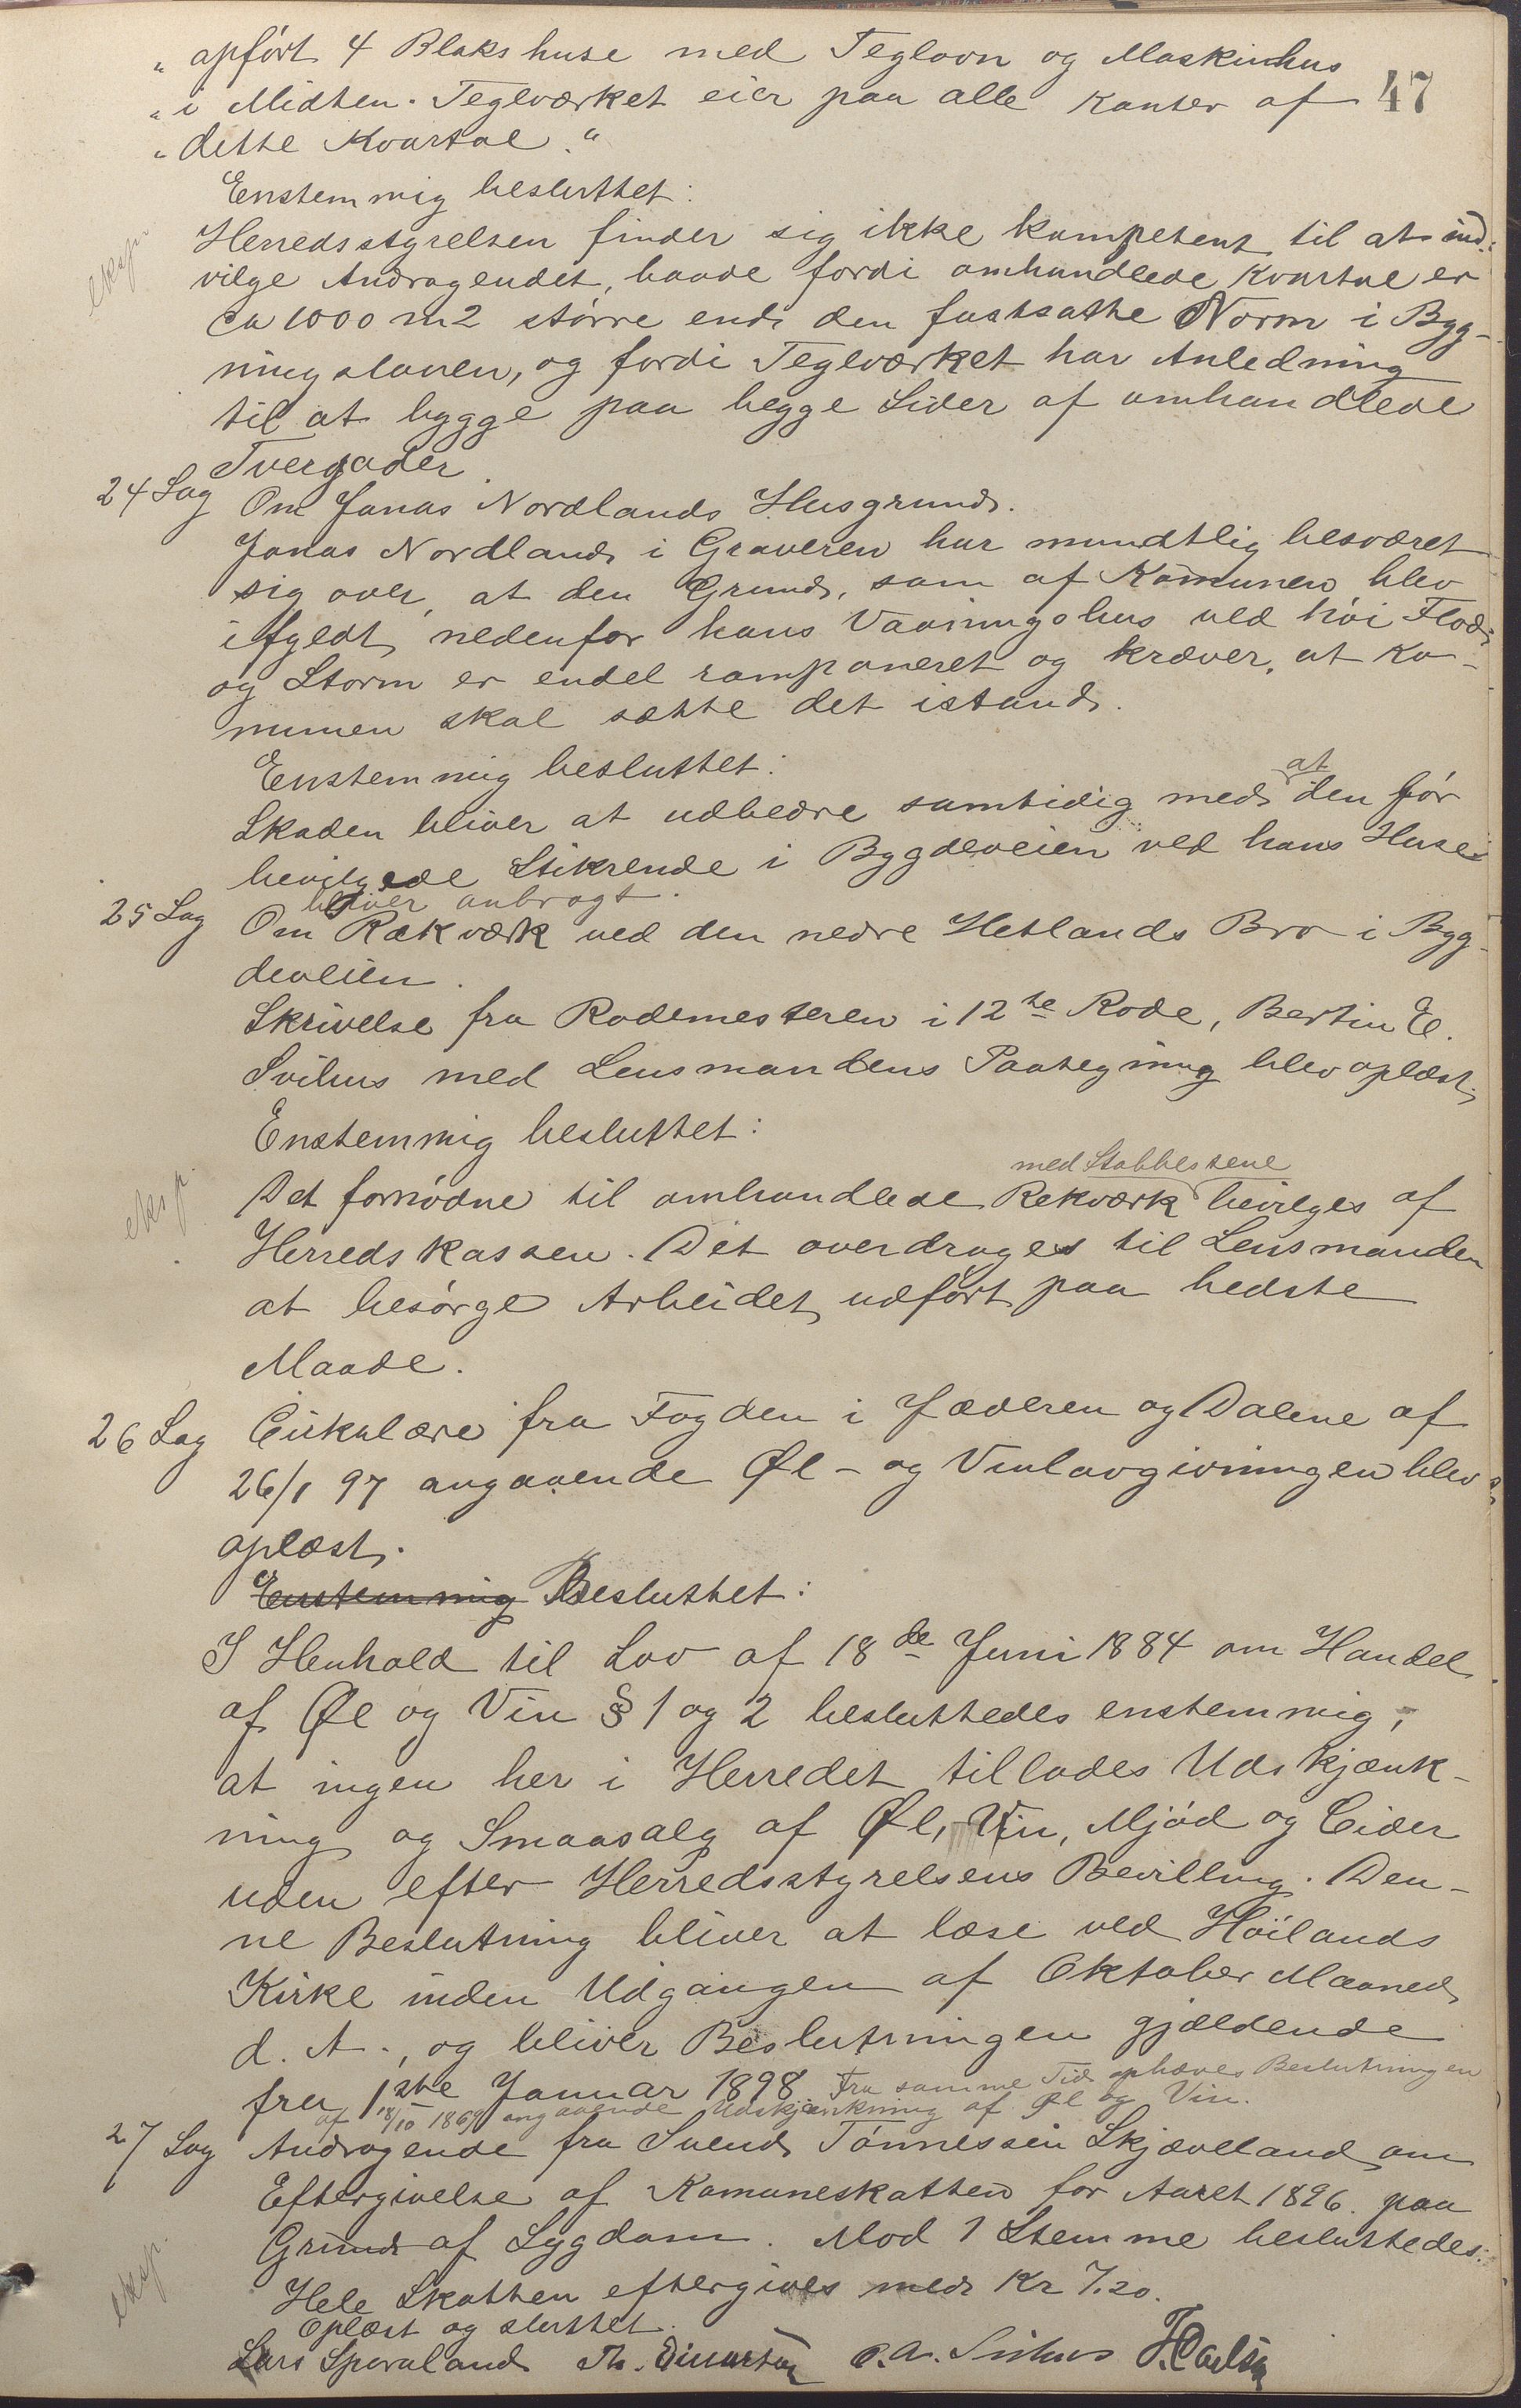 " opført 4 Blokshuse med Teglovn og Maskinhus
47
" i Midten. Teglværket eier paa alle Kanter af
" dette Kvartal."
Enstemmig besluttet:
eksp.
Herredsstyrelsen finder sig ikke kompetent til at ind-
vilge Andragendet, baade fordi omhandlede Kvartal er
ca 1000 m2 større end den fastsatte Norm i Byg-
ningsloven, og fordi Teglværket har Anledning
til at bygge paa begge Sider af omhandlede
Tvergader.
24 Sag Om Jonas Nordlands Husgrund.
Jonas Nordland i Graveren har mundtlig besværet
sig over, at den Grund, som af Komunen blev
ifyldt nedenfor hans Vaaningshus ved høi Flod
og Storm er endel ramponeret og kræver, at Ko-
munen skal sætte det istand.
Enstemmig besluttet:
Skaden bliver at udbedre samtidig med at den før
bevilgede Stikrende i Bygdeveien ved hans Huse
bliver anbragt.
25 Sag Om Rækværk ved den nedre Hetlands Bro i Byg-
deveien.
Skrivelse fra Rodemesteren i 12te Rode, Bertin E.
Svihus med Lensmandens Paategning blev oplæst.
Enstemmig besluttet:
eksp.
Det fornødne til omhandlede Rekværk med Stabbestene bevilges af
Herredskassen. Det overdrages til Lensmanden
at besørge Arbeidet udført paa bedste
Maade.
26 Sag Cirkulære fra Fogden i Jæderen og Dalene af
26/1 97 angaaende Øl- og Vinlovgivningen blev
oplæst.
Enstemmig Besluttet:
I Henhold til Lov af 18de Juni 1884 om Handel
af Øl og Vin § 1 og 2 besluttedes enstemmig,
at ingen her i Herredet tillades Udskjænk-
ning og Smaasalg af Øl, Vin, Mjød og Cider
uden efter Herredsstyrelsens Bevilling. Den-
ne Beslutning bliver at læse ved Høilands
Kirke inden Udgangen af Oktober Maaned
d. A., og bliver Beslutningen gjældende
fra 1ste Januar 1898. Fra samme Tid ophæves Beslutningen
af 18/10 1869 angaaende Udskjænkning af Øl og Vin.
27 Sag Andragende fra Svend Tønnessen Skjæveland om
Eftergivelse af Komuneskatten for Aaret 1896 paa
Grund af Sygdom. Mod 1 Stemme besluttedes:
eksp.
Hele Skatten eftergives med Kr 7.20.
Oplæst og sluttet.
Lars Sporaland Th. O. A. Svihus